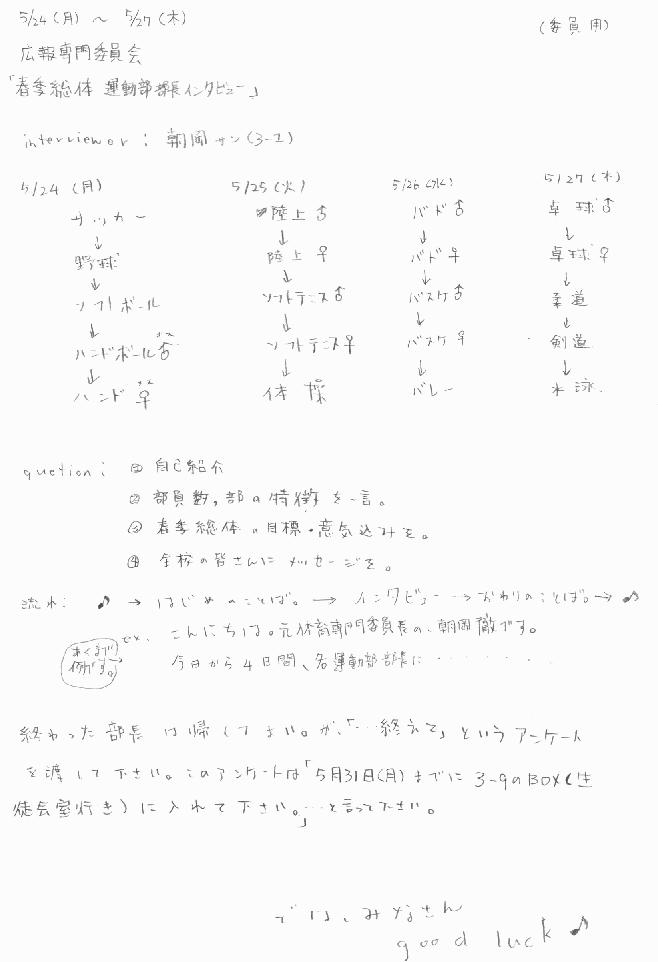 5/24(月) ～ 5/27(木)
(委員用)
広報専門委員会
「春季総体 運動部部長インタビュー」
interviewer : 朝岡サン(3-1)
5/24 (月) 5/25(火) 5/26(水) 5/27(木)
サッカー 陸上♂ バド♂ 卓球♂
↓ ↓ ↓ ↓
野球 陸上♀ バド♀ 卓球♀
↓ ↓ ↓ ↓
ソフトボール ソフトテニス♂ バスケ♂ 柔道
↓ ↓ ↓ ↓
ハンドボール♂ ソフトテニス♀ バスケ♀ 剣道
↓ ↓ ↓ ↓
ハンド♀ 体操 バレー 水泳
quetion : ① 自己紹介
② 部員数,部の特徴を一言。
③ 春季総体の目標・意気込みを。
④ 全校の皆さんにメッセージを。
流れ: ♪ → はじめのことば。 → インタビュー → おわりのことば。→ ♪
あくまで例です。
こんにちは。元体育専門委員長の、朝岡徹です。
今日から4日間、各運動部部長に‥‥‥‥
終わった部長は帰してよい。が、「…終えて」というアンケート
を渡して下さい。このアンケートは「5月31日(月)までに3-9のBOX(生
徒会室行き)に入れて下さい。」…と言って下さい。
では、みなさん
good luck ♪